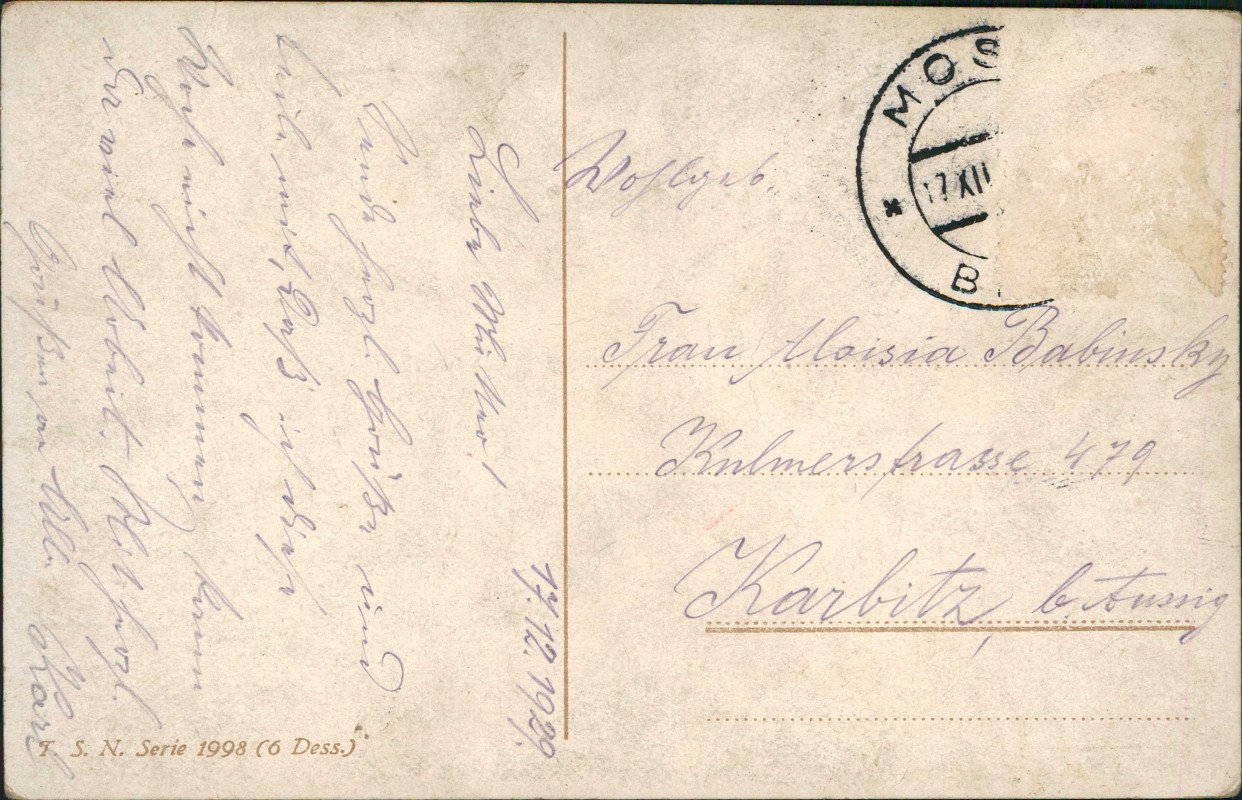 17.12.1929.
Liebe Mutter!
Sende herzl. Grüße und
teile mit, daß ich diese
Woche nicht kommen kann
da viel Arbeit. Mit herzl.
Grüßen an Alle Karl
T. S. N. Serie 1998 (6 Dess.)
MOS
17 XII
B
Wohlgeb.
Frau Aloisia Babinsky
Kulmerstrasse 479
Karbitz, b. Aussig